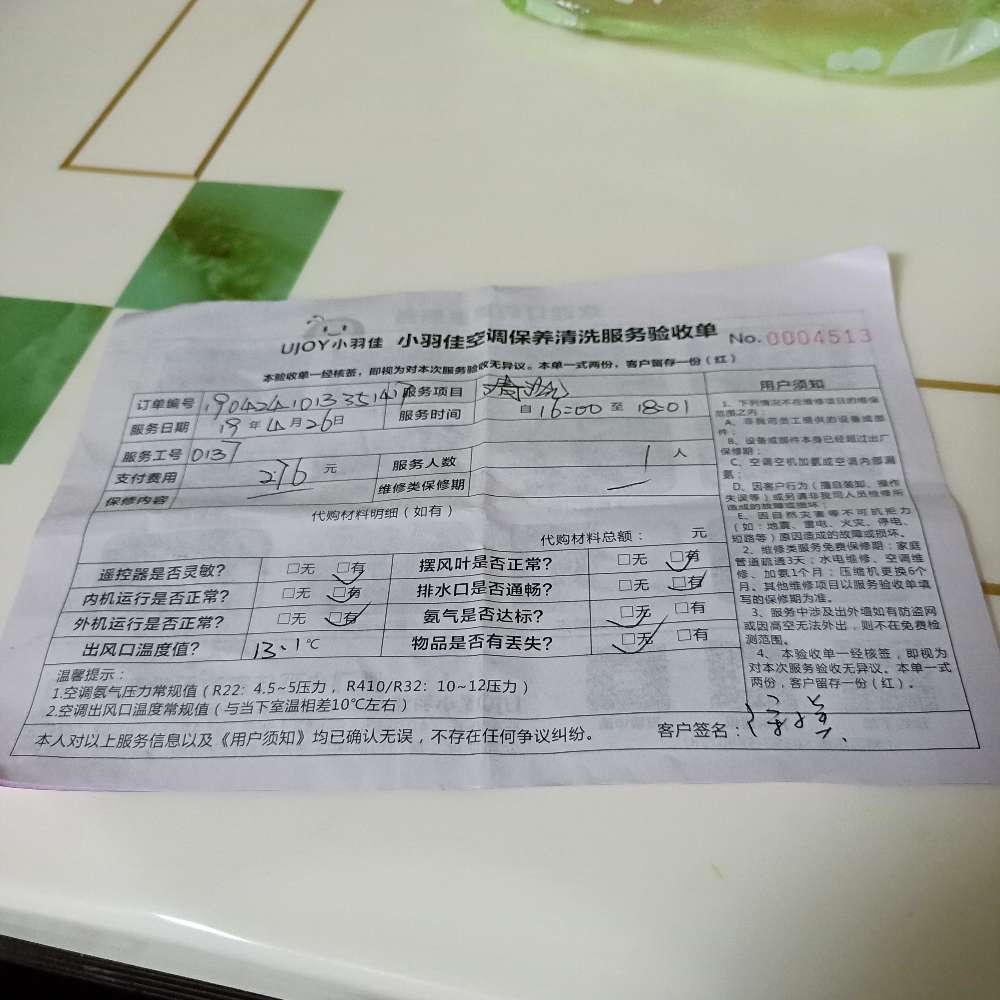 UJOY小羽佳 小羽佳空调保养清洗服务验收单 No.0004513
本验收单一经核签，即视为对本次服务验收无异议。本单一式两份，客户留存一份（红）
订单编号 服务项目 清洗
服务日期 19年4月26日 服务时间 自 16:00 至 18:01
服务工号 0137
支付费用 276 元 服务人数 1 人
保修内容 维修类保修期 一
代购材料明细（如有）
代购材料总额： 元
遥控器是否灵敏? □无 □有 摆风叶是否正常? □无 □有
内机运行是否正常? □无 □有 排水口是否通畅? □无 □有
外机运行是否正常? □无 □有 氨气是否达标? □无 □有
出风口温度值? 13.1℃ 物品是否有丢失? □无 □有
温馨提示：
1.空调氨气压力常规值（R22：4.5~5压力，R410/R32：10~12压力）
2.空调出风口温度常规值（与当下室温相差10℃左右）
本人对以上服务信息以及《用户须知》均已确认无误，不存在任何争议纠纷。 客户签名：
用户须知
1、下列情况不在维修项目的维保
范围之内：
A、非我司员工提供的设备或部
件；
B、设备或部件本身已经超过出厂
保修期；
C、空调空机加氨或空调内部漏
氨；
D、因客户行为（擅自装卸、操作
失误等）或另请非我司人员维修所
造成的故障或损坏；
E、因自然灾害等不可抗拒力
（如：地震、雷电、火灾、停电、
短路等）原因造成的故障或损坏。
2、维修类服务免费保修期：家庭
管道疏通3天；水电维修、空调维
修、加氨1个月；压缩机更换6个
月。其他维修项目以服务验收单填
写的保修期为准。
3、服务中涉及出外墙如有防盗网
或因高空无法外出，则不在免费检
测范围。
4、本验收单一经核签，即视为
对本次服务验收无异议。本单一式
两份，客户留存一份（红）。